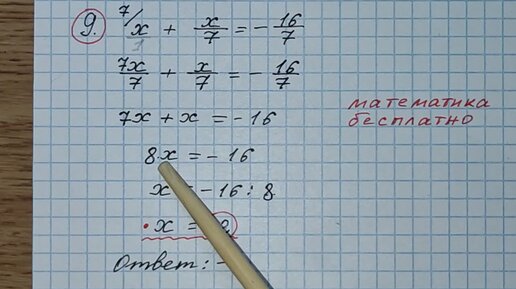 9. 7/ x/1 + x/7 = - 16/7
7x/7 + x/7 = - 16/7
7x + x = -16
математика
бесплатно
8x = -16
x = -16 : 8
x =
Ответ: -